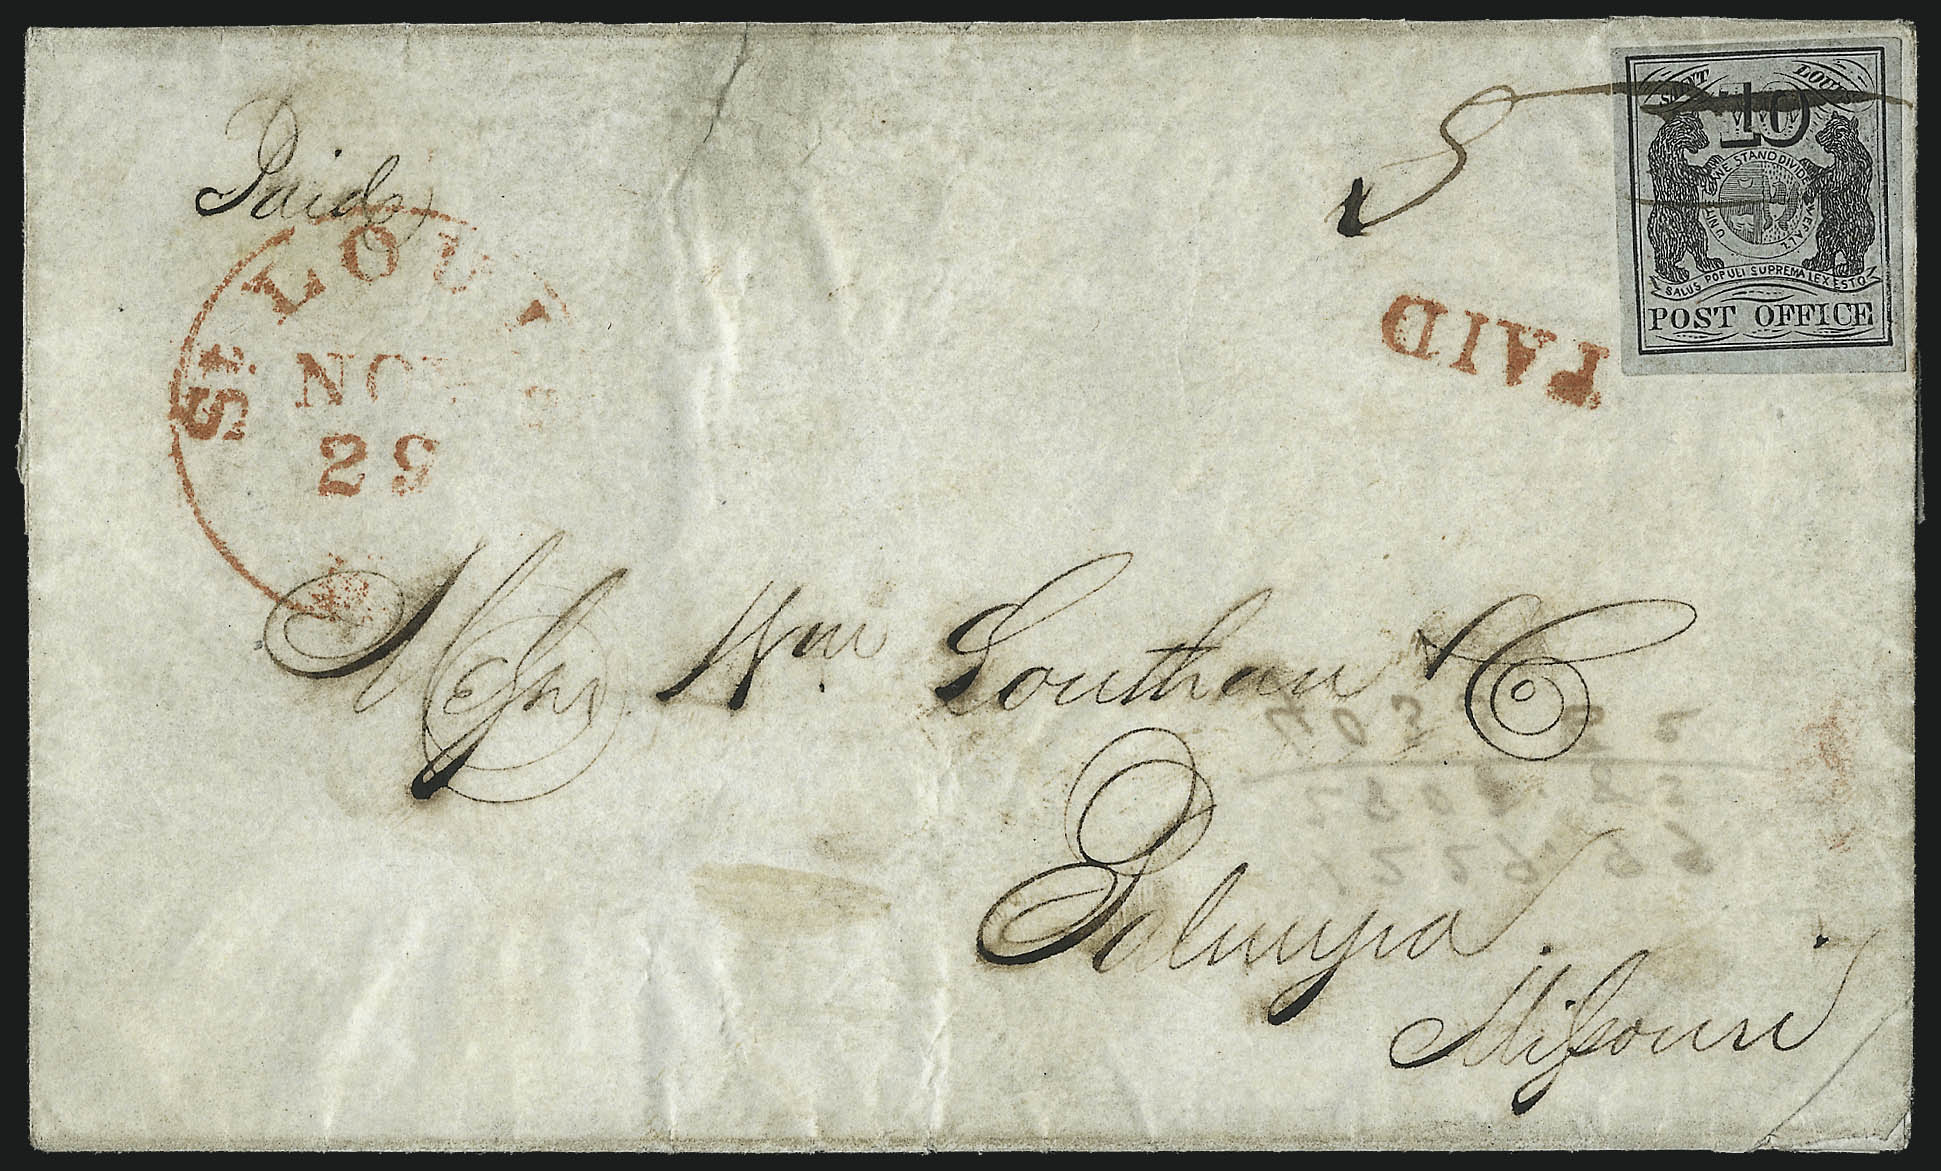 Paid
5
SAINT LOUIS
10
UNITED WE STAND DIVIDED WE FALL
SALUS POPULI SUPREMA LEX ESTO
POST OFFICE
PAID
St. LOUI
NOV
29
Messrs Wm Southan & Co
Palmyra
Missouri